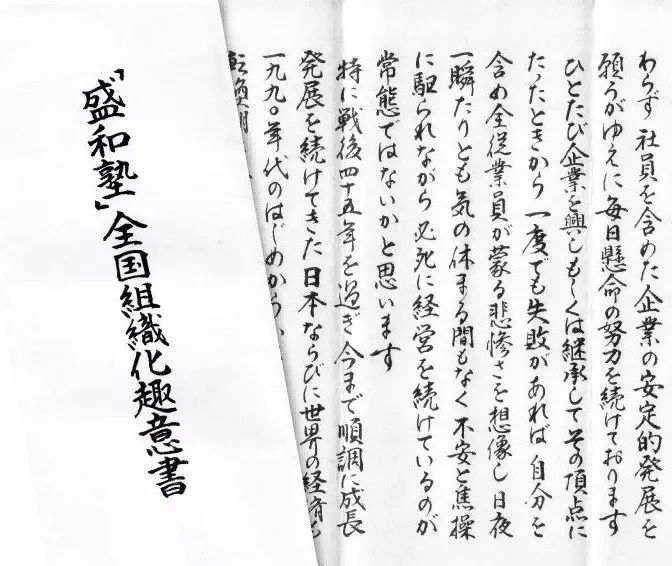 わらず 社員を含めた企業の安定的発展を
願うがゆえに毎日懸命の努力を続けております
ひとたび企業を興しもしくは継承してその頂点に
たったときから 一度でも失敗があれば 自分を
含め全従業員が蒙る悲惨さを想像し 日夜
一瞬たりとも気の休まる間もなく不安と焦操
に駆られながら 必死に経営を続けているのが
常態ではないかと思います
特に戦後四十五年を過ぎ今まで順調に成長
発展を続けてきた日本ならびに世界の経済も
一九九〇年代のはじめから
「盛和塾」全国組織化趣意書